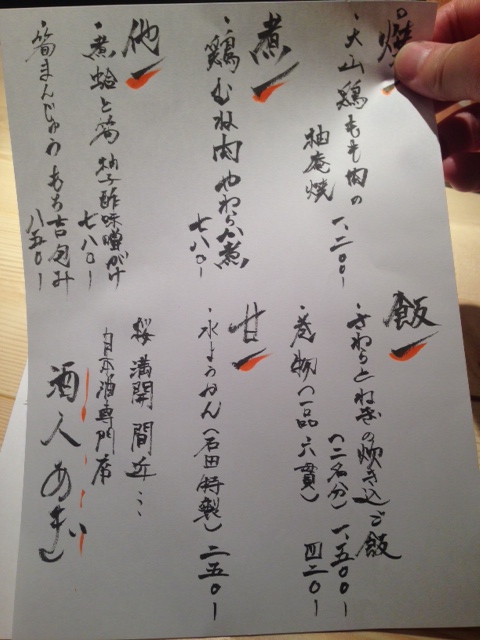 焼
・大山鶏もも肉の
柚庵焼
一、二〇〇ー
煮
・鶏むね肉やわらか煮
七八〇ー
他
・煮蛤と筍 柚子酢味噌がけ
七八〇ー
・筍まんじゅう もち吉包み
八五〇ー
飯
・さわらとねぎの炊き込ご飯
(二名分) 一、五〇〇ー
・巻物(一品 六貫) 四二〇ー
甘
・水ようかん(石田特製) 二五〇ー
桜 満開 間近…
日本酒専門店
酒人 あぎ